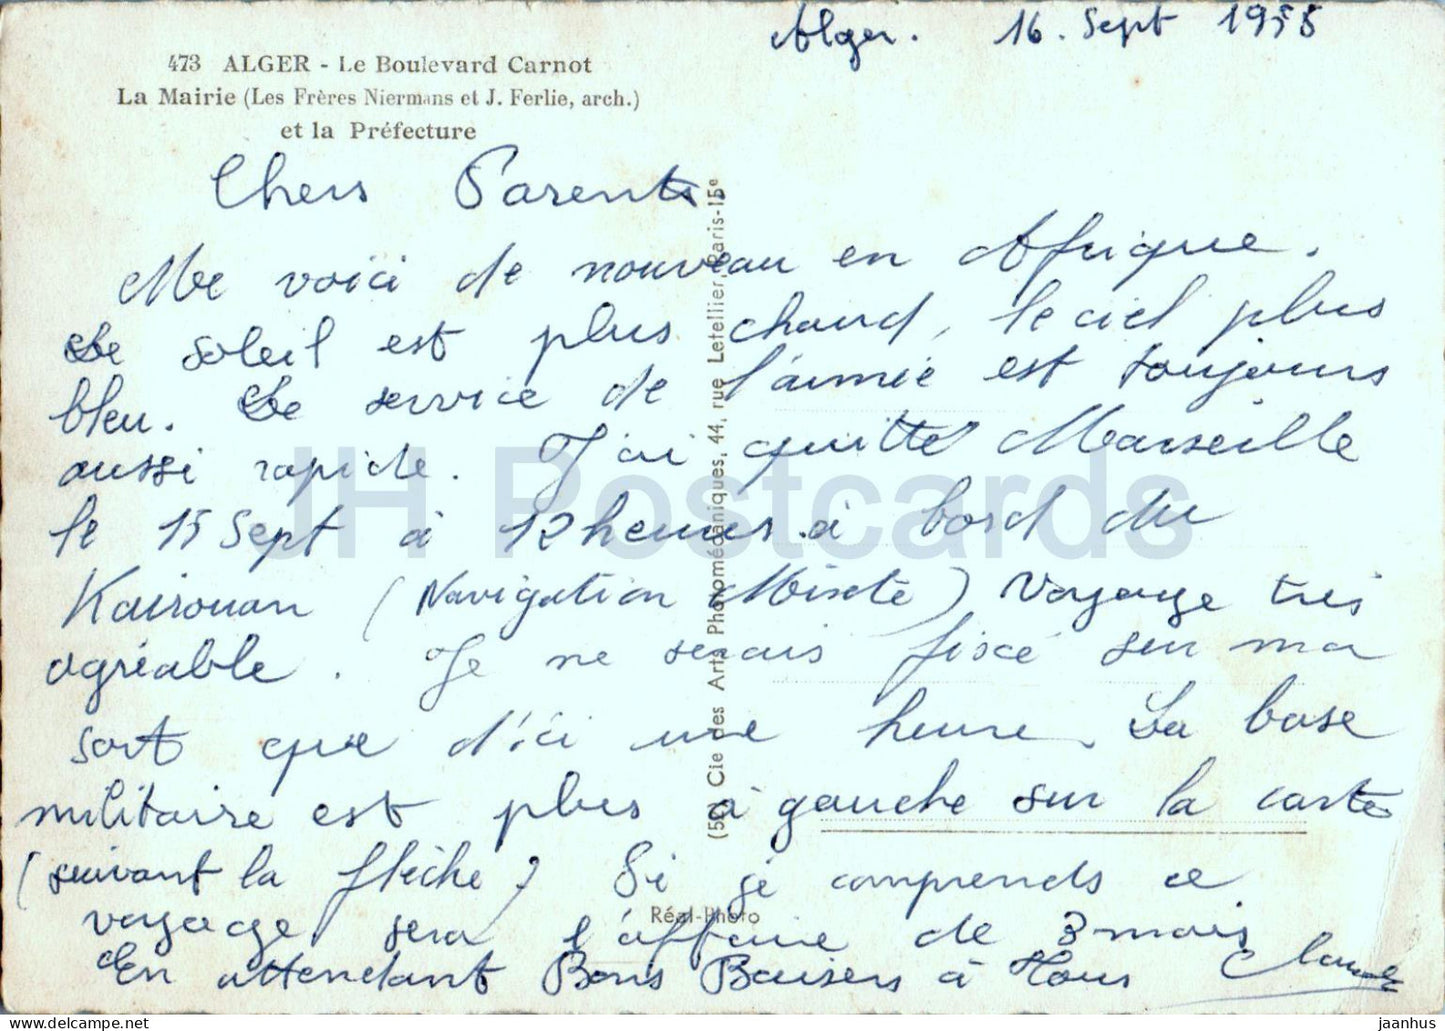 Alger. 16. Sept 1955
473 ALGER - Le Boulevard Carnot
La Mairie (Les Frères Niermans et J. Ferlie, arch.)
et la Préfecture
Chers Parents.
Me voici de nouveau en Afrique.
Le soleil est plus chaud, le ciel plus
bleu. Le service de l'armée est toujours
aussi rapide. J'ai quitté Marseille
le 15 Sept à 12 heures à bord du
Kairouan (Navigation Mixte) Voyage très
agréable. Je ne serais fixé sur ma
sort que d'ici une heure. La base
militaire est plus à gauche sur la carte
(suivant la flèche) Si je comprends ce
voyage sera l'affaire de 3 mois
En attendant Bons Baisers à Tous Claude
(50) Cie des Arts Photomécaniques, 44, rue Letellier, Paris-15e
Réal-Photo
IH Postcards
jaanhus | delcampe.net